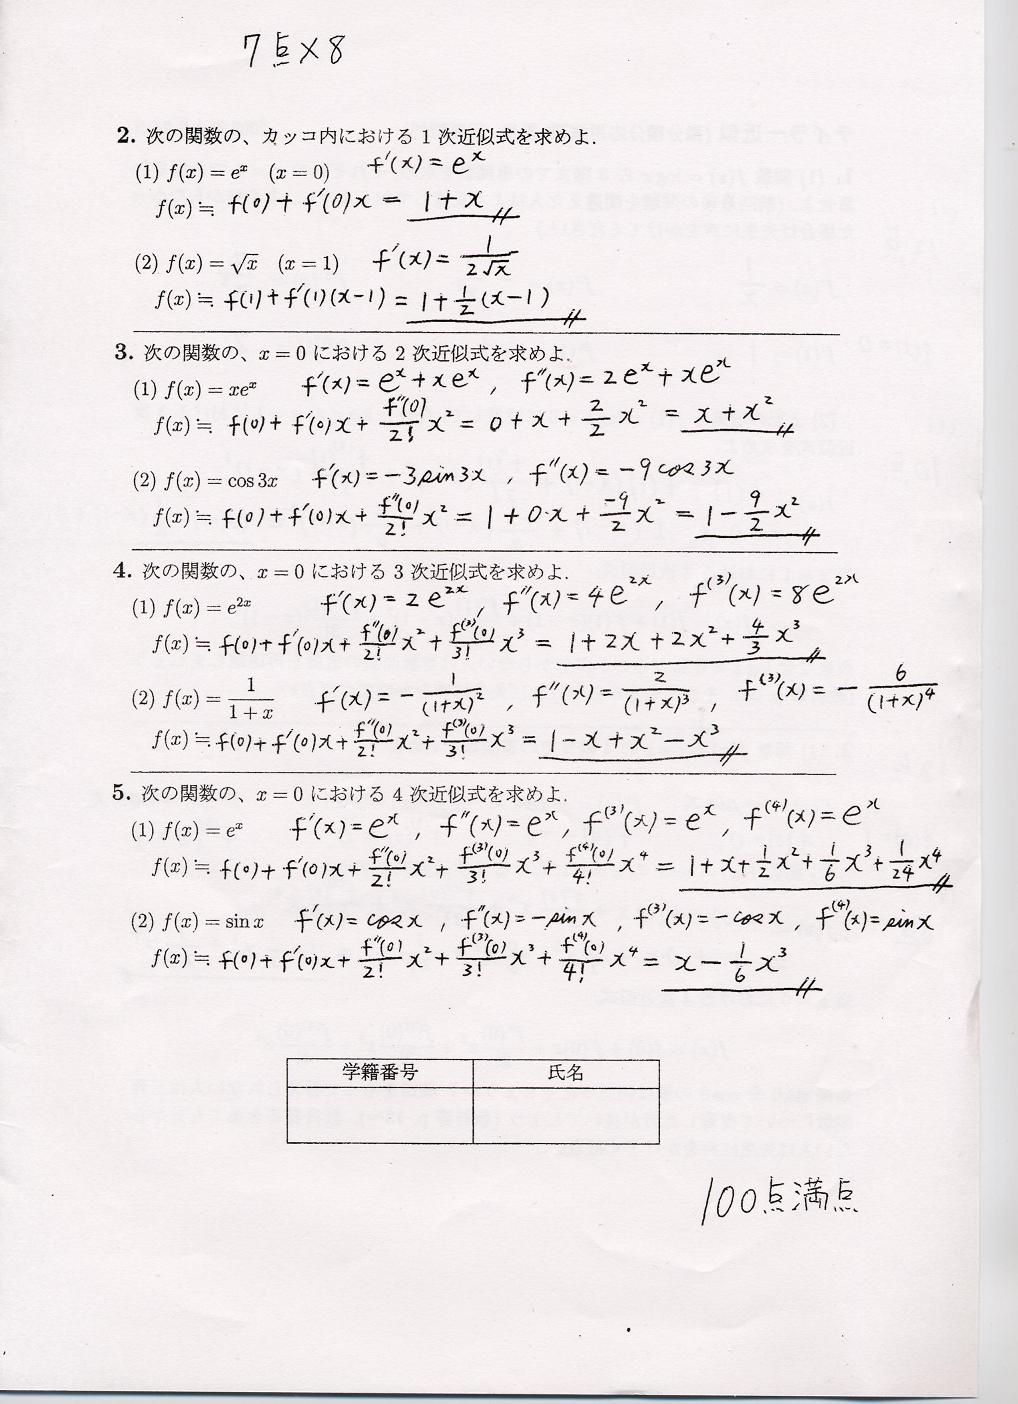 7点×8
2. 次の関数の、カッコ内における 1 次近似式を求めよ.
(1) f(x) = eˣ (x = 0) f′(x) = eˣ
f(x) ≒ f(0) + f′(0)x = 1 + x
(2) f(x) = √x (x = 1) f′(x) = 1/(2√x)
f(x) ≒ f(1) + f′(1)(x−1) = 1 + 1/2 (x−1)
3. 次の関数の、x = 0 における 2 次近似式を求めよ.
(1) f(x) = xeˣ f′(x) = eˣ + xeˣ , f″(x) = 2eˣ + xeˣ
f(x) ≒ f(0) + f′(0)x + f″(0)/2! x² = 0 + x + 2/2 x² = x + x²
(2) f(x) = cos 3x f′(x) = −3sin3x , f″(x) = −9cos3x
f(x) ≒ f(0) + f′(0)x + f″(0)/2! x² = 1 + 0·x + −9/2 x² = 1 − 9/2 x²
4. 次の関数の、x = 0 における 3 次近似式を求めよ.
(1) f(x) = e²ˣ f′(x) = 2e²ˣ , f″(x) = 4e²ˣ , f⁽³⁾(x) = 8e²ˣ
f(x) ≒ f(0) + f′(0)x + f″(0)/2! x² + f⁽³⁾(0)/3! x³ = 1 + 2x + 2x² + 4/3 x³
(2) f(x) = 1/(1 + x) f′(x) = − 1/(1+x)² , f″(x) = 2/(1+x)³ , f⁽³⁾(x) = − 6/(1+x)⁴
f(x) ≒ f(0) + f′(0)x + f″(0)/2! x² + f⁽³⁾(0)/3! x³ = 1 − x + x² − x³
5. 次の関数の、x = 0 における 4 次近似式を求めよ.
(1) f(x) = eˣ f′(x) = eˣ , f″(x) = eˣ , f⁽³⁾(x) = eˣ , f⁽⁴⁾(x) = eˣ
f(x) ≒ f(0) + f′(0)x + f″(0)/2! x² + f⁽³⁾(0)/3! x³ + f⁽⁴⁾(0)/4! x⁴ = 1 + x + 1/2 x² + 1/6 x³ + 1/24 x⁴
(2) f(x) = sin x f′(x) = cosx , f″(x) = −sinx , f⁽³⁾(x) = −cosx , f⁽⁴⁾(x) = sinx
f(x) ≒ f(0) + f′(0)x + f″(0)/2! x² + f⁽³⁾(0)/3! x³ + f⁽⁴⁾(0)/4! x⁴ = x − 1/6 x³
学籍番号 氏名
100点満点